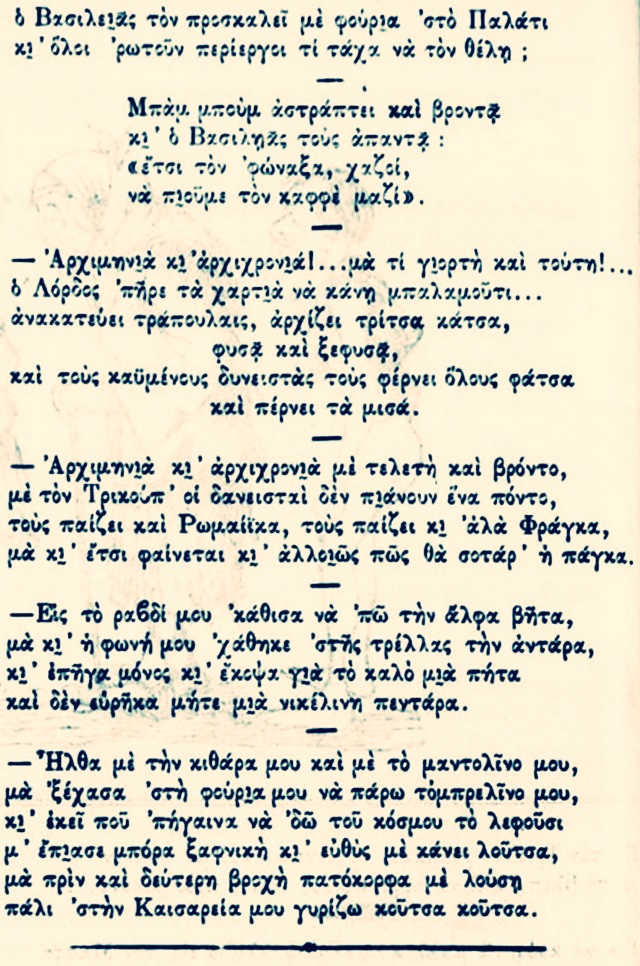 ὁ Βασιλειᾶς τὸν προσκαλεῖ μὲ φούρια 'στὸ Παλάτι
κι' ὅλοι 'ρωτοῦν περίεργοι τί τάχα νὰ τὸν θέλῃ ;
Μπὰμ μποὺμ ἀστράπτει καὶ βροντᾷ
κι' ὁ Βασιληᾶς τοὺς ἀπαντᾷ :
«ἔτσι τὸν 'φώναξα, χαζοί,
νὰ πιοῦμε τὸν καφφὲ μαζί».
— Ἀρχιμηνιὰ κι' ἀρχιχρονιά!...μὰ τί γιορτὴ καὶ τούτη!...
ὁ Λόρδος 'πῆρε τὰ χαρτιὰ νὰ κάνῃ μπαλαμοῦτι...
ἀνακατεύει τράπουλαις, ἀρχίζει τρίτσα κάτσα,
φυσᾷ καὶ ξεφυσᾷ,
καὶ τοὺς καϋμένους δυνειστὰς τοὺς φέρνει ὅλους φάτσα
καὶ πέρνει τὰ μισά.
— Ἀρχιμηνιὰ κι' ἀρχιχρονιὰ μὲ τελετὴ καὶ βρόντο,
μὲ τὸν Τρικούπ' οἱ δανεισταὶ δὲν πιάνουν ἕνα πόντο,
τοὺς παίζει καὶ Ρωμαίϊκα, τοὺς παίζει κι 'ἀλὰ Φράγκα,
μὰ κι' ἔτσι φαίνεται κι' ἀλλοιῶς πῶς θὰ σοτάρ' ἡ πάγκα.
—Εἰς τὸ ραβδί μου 'κάθισα νὰ 'πῶ τὴν ἄλφα βῆτα,
μὰ κι' ἡ φωνή μου 'χάθηκε 'στῆς τρέλλας τὴν ἀντάρα,
κι' ἐπῆγα μόνος κι' ἔκοψα γιὰ τὸ καλὸ μιὰ πήτα
καὶ δὲν εὑρῆκα μήτε μιὰ νικέλινη πεντάρα.
—Ἦλθα μὲ τὴν κιθάρα μου καὶ μὲ τὸ μαντολῖνο μου,
μὰ 'ξέχασα 'στὴ φούρια μου νὰ πάρω τὀμπρελῖνο μου,
κι' ἐκεῖ ποῦ 'πήγαινα νὰ 'δῶ τοῦ κόσμου τὸ λεφοῦσι
μ' ἔπιασε μπόρα ξαφνικὴ κι' εὐθὺς μὲ κάνει λοῦτσα,
μὰ πρὶν καὶ δεύτερη βροχὴ πατόκορφα μὲ λούσῃ
πάλι 'στὴν Καισαρεία μου γυρίζω κοῦτσα κοῦτσα.